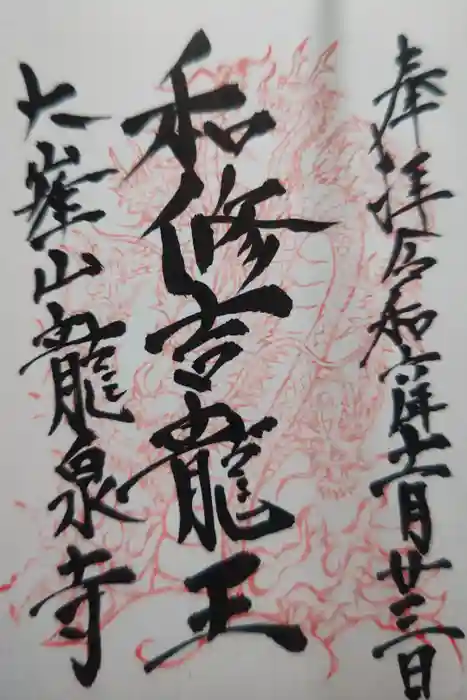 奉拝令和六年十一月廿三日
和修吉龍王
大峯山龍泉寺